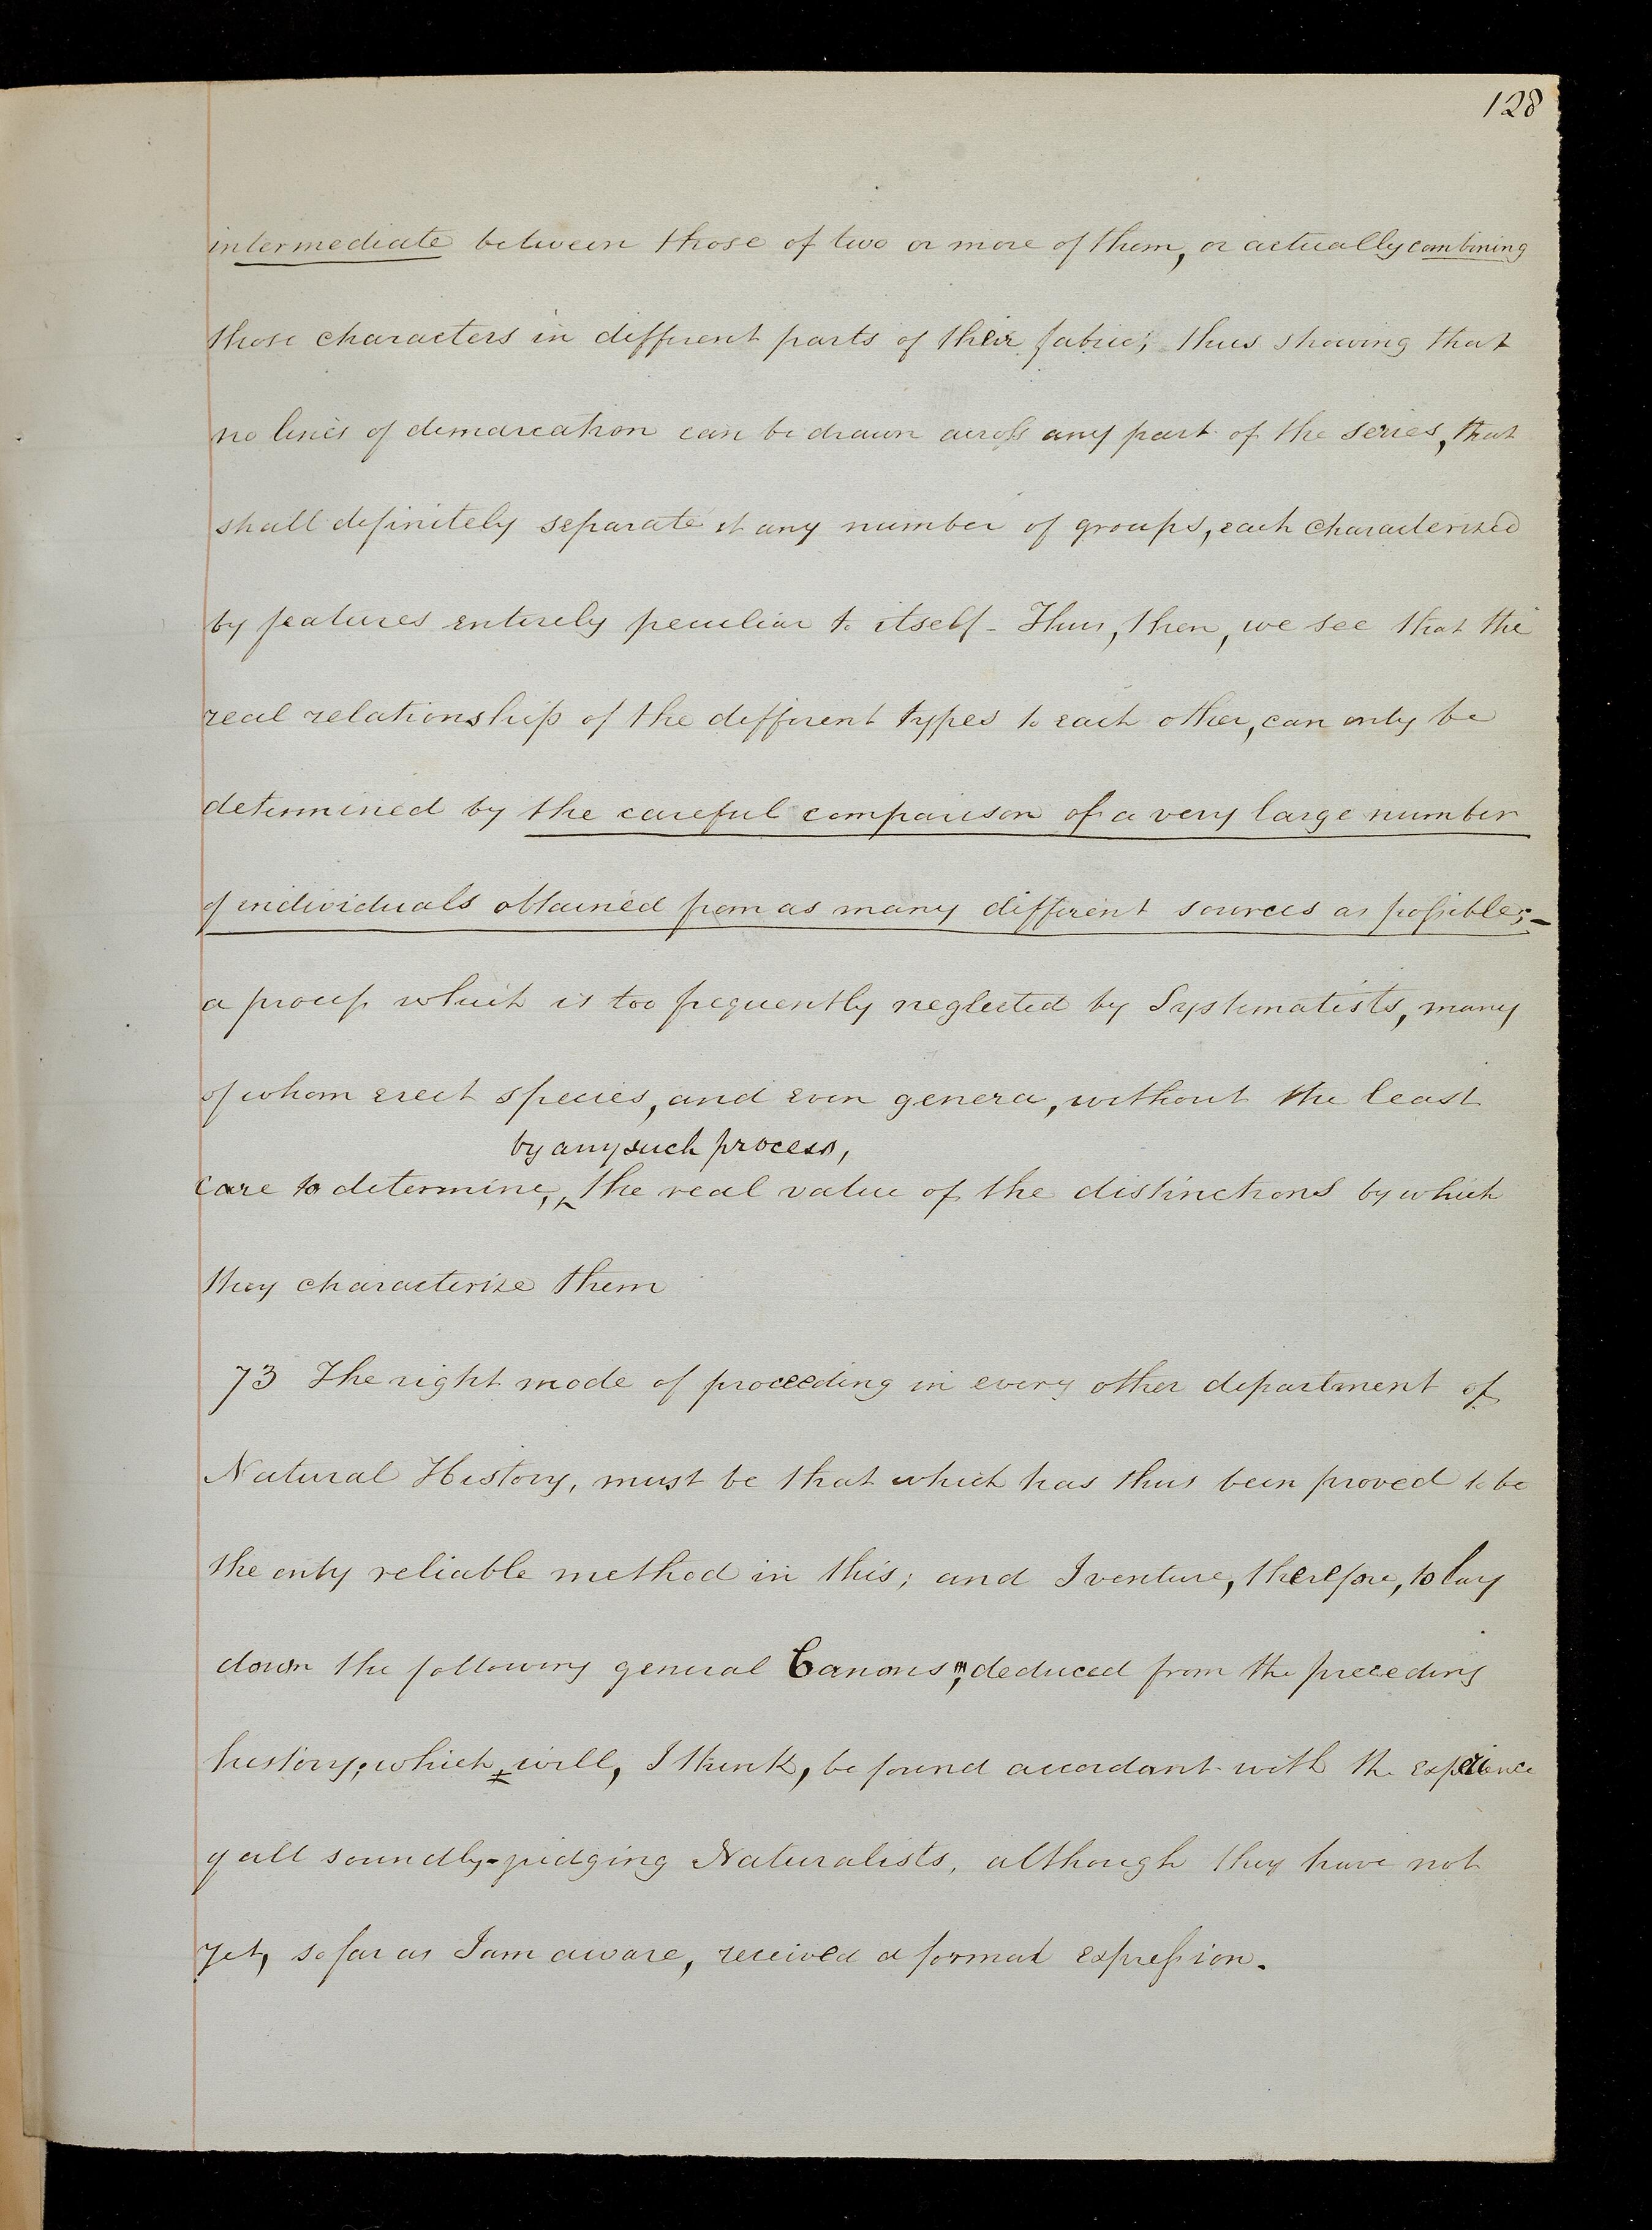 128
intermediate between those of two or more of them, or actually combining
those characters in different parts of their fabric; thus showing that
no lines of demarcation can be drawn across any part of the series, that
shall definitely separate it any number of groups, each characterized
by features entirely peculiar to itself - Thus, then, we see that the
real relationship of the different types to each other, can only be
determined by the careful comparison of a very large number
of individuals obtained from as many different sources as possible;-
a process which is too frequently neglected by Systematists, many
of whom erect species, and even genera, without the least
by any such process,
care to determine, ‸ the real value of the distinctions by which
they characterize them
73 The right mode of proceeding in every other department of
Natural History, must be that which has thus been proved to be
the only reliable method in this; and I venture, therefore, to lay
down the following general Canons, deduced from the preceding
history; which will, I think, be found accordant with the experience
of all soundly-judging Naturalists, although they have not
yet, so far as I am aware, received a formal expression.